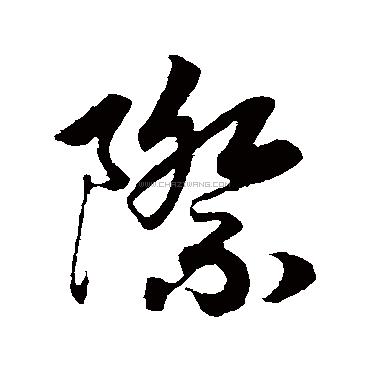 際
WWW.CHAZIWANG.COM